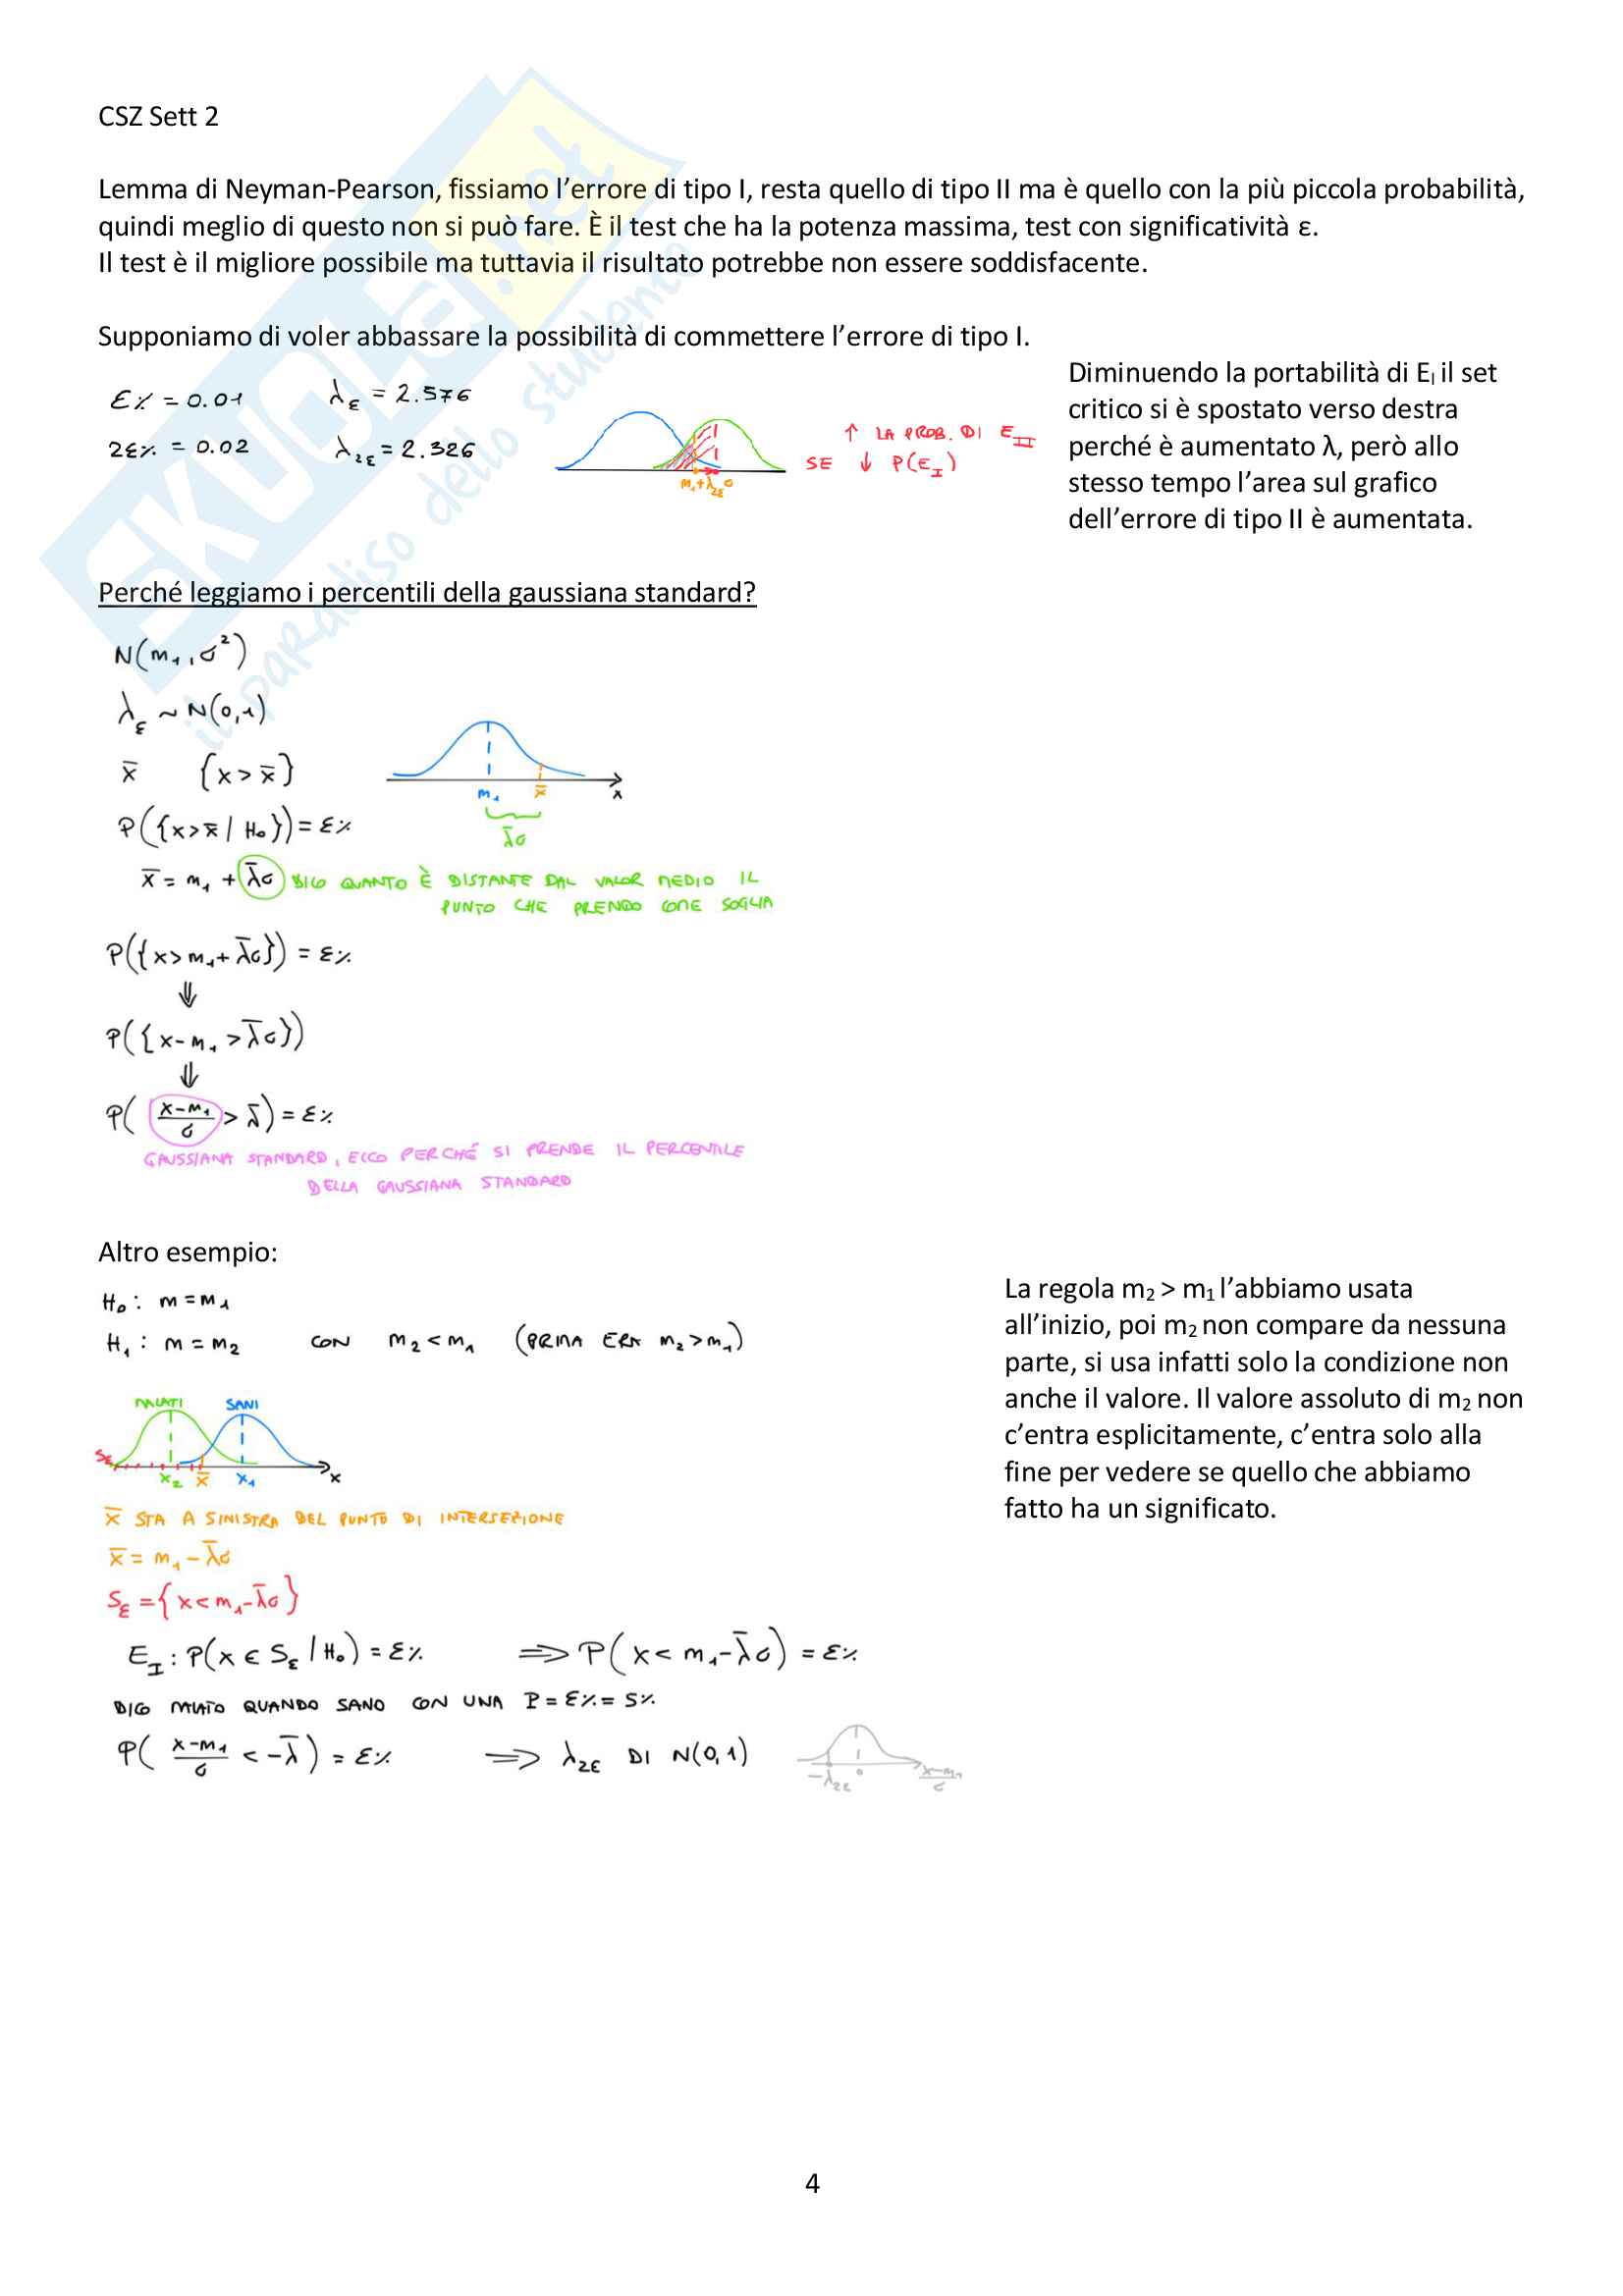 CSZ Sett 2
Lemma di Neyman-Pearson, fissiamo l’errore di tipo I, resta quello di tipo II ma è quello con la più piccola probabilità,
quindi meglio di questo non si può fare. È il test che ha la potenza massima, test con significatività ε.
Il test è il migliore possibile ma tuttavia il risultato potrebbe non essere soddisfacente.
Supponiamo di voler abbassare la possibilità di commettere l’errore di tipo I.
ε% = 0.01 λ_ε = 2.576
2ε% = 0.02 λ_2ε = 2.326
m₁+λ_2ε σ
↑ LA PROB. DI E_II
SE ↓ P(E_I)
Diminuendo la portabilità di E_I il set
critico si è spostato verso destra
perché è aumentato λ, però allo
stesso tempo l’area sul grafico
dell’errore di tipo II è aumentata.
Perché leggiamo i percentili della gaussiana standard?
N(m₁, σ²)
λ_ε ~ N(0,1)
x̄ {x > x̄}
m₁ x̄ x
λ̄σ
P({x > x̄ | H₀}) = ε%
x̄ = m₁ + λ̄σ DICO QUANTO È DISTANTE DAL VALOR MEDIO IL
PUNTO CHE PRENDO COME SOGLIA
P({x > m₁ + λ̄σ}) = ε%
⇓
P({x - m₁ > λ̄σ})
⇓
P((x - m₁)/σ > λ̄) = ε%
GAUSSIANA STANDARD, ECCO PERCHÉ SI PRENDE IL PERCENTILE
DELLA GAUSSIANA STANDARD
Altro esempio:
H₀: m = m₁
H₁: m = m₂ CON m₂ < m₁ (PRIMA ERA m₂ > m₁)
MALATI SANI
S_ε x₂ x̄ x₁ x
x̄ STA A SINISTRA DEL PUNTO DI INTERSEZIONE
x̄ = m₁ - λ̄σ
S_ε = {x < m₁ - λ̄σ}
E_I: P(x ∈ S_ε | H₀) = ε% ⇒ P(x < m₁ - λ̄σ) = ε%
DICO MALATO QUANDO SANO CON UNA P = ε% = 5%
P((x - m₁)/σ < -λ̄) = ε% ⇒ λ_2ε DI N(0,1)
-λ_2ε 0 (x - m₁)/σ
La regola m₂ > m₁ l’abbiamo usata
all’inizio, poi m₂ non compare da nessuna
parte, si usa infatti solo la condizione non
anche il valore. Il valore assoluto di m₂ non
c’entra esplicitamente, c’entra solo alla
fine per vedere se quello che abbiamo
fatto ha un significato.
4
SKUOLA.net
il paradiso dello studente